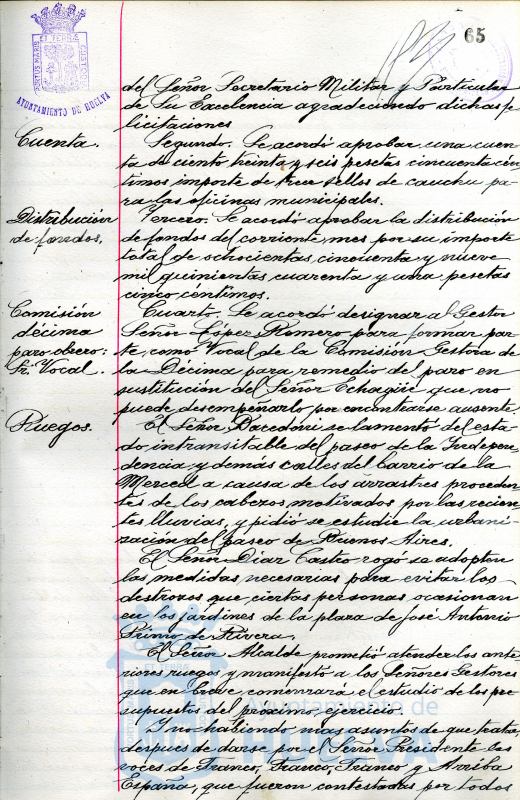 65
PORTUS MARIS ET TERRAE CUSTODIA
AYUNTAMIENTO DE HUELVA
del Señor Secretario Militar y Particular
de Su Excelencia agradeciendo dichas fe
licitaciones
Cuenta.
Segundo. Se acordó aprobar una cuen
ta de ciento treinta y seis pesetas cincuenta cén
timos importe de trece sellos de cauchu pa
ra las oficinas municipales.
Distribución
de fondos.
Tercero. Se acordó aprobar la distribución
de fondos del corriente mes por su importe
total de seiscientas cincuenta y nueve
mil quinientas cuarenta y una pesetas
cinco céntimos.
Comisión
décima
paro obrero:
Sr. Vocal.
Cuarto. Se acordó designar al Gestor
Señor López Romero para formar par
te como Vocal de la Comisión Gestora de
la Décima para remedio del paro en
sustitución del Señor Echagüe que no
puede desempeñarlo por encontrarse ausente.
Ruegos.
El Señor se lamentó del esta
do intransitable del paseo de la Indepen
dencia y demás calles del barrio de la
Merced a causa de los arrastres proceden
tes de los cabezos, motivados por las recien
tes lluvias, y pidió se estudie la urbani
zación del paseo de Buenos Aires.
El Señor Díaz Castro rogó se adopten
las medidas necesarias para evitar los
destrozos que ciertas personas ocasionan
en los jardines de la plaza de José Antonio
Primo de Rivera.
El Señor Alcalde prometió atender los ante
riores ruegos y manifestó a los Señores Gestores
que en breve comenzará el estudio de los pre
supuestos del próximo ejercicio.
Y no habiendo mas asuntos de que tratar,
despues de darse por el Señor Presidente las
voces de Franco, Franco, Franco y Arriba
España, que fueron contestadas por todos
Ayuntamiento de
HUELVA